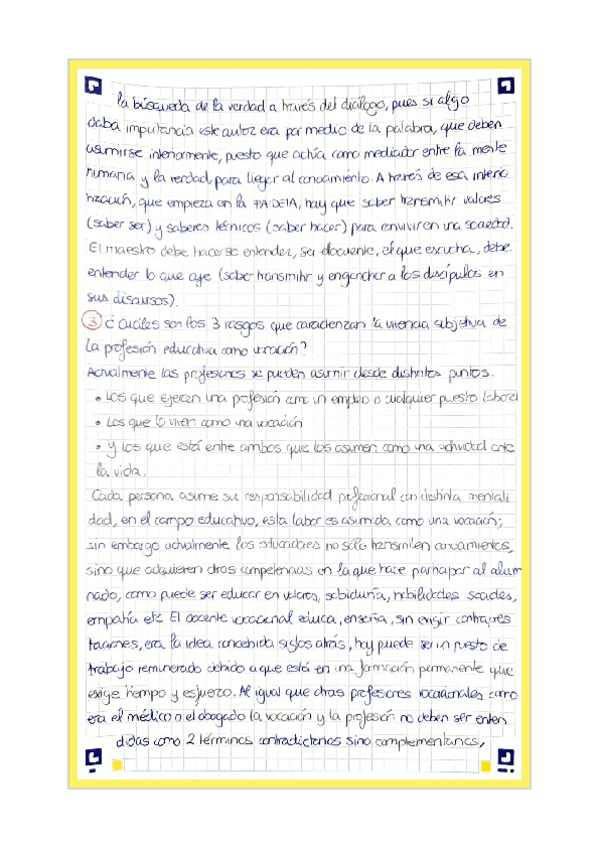 la búsqueda de la verdad a través del diálogo, pues si algo
daba importancia este autor era por medio de la palabra, que deben
asumirse interiormente, puesto que actúa como mediador entre la mente
humana y la verdad, para llegar al conocimiento. A través de esa interio
rización, que empieza en la PAIDEIA, hay que saber transmitir valores
(saber ser) y saberes técnicos (saber hacer) para convivir en una sociedad.
El maestro debe hacerse entender, ser elocuente, el que escucha, debe
entender lo que oye (saber transmitir y enganchar a los discípulos en
sus discursos).
3 ¿Cuáles son los 3 rasgos que caracterizan la vivencia subjetiva de
la profesión educativa como vocación?
Actualmente las profesiones se pueden asumir desde distintos puntos.
• Los que ejercen una profesión como un empleo o cualquier puesto laboral
• Los que lo viven como una vocación
• Y los que está entre ambos que los asumen como una actividad ante
la vida.
Cada persona asume su responsabilidad profesional con distinta mentali
dad, en el campo educativo, esta labor es asumida como una vocación;
sin embargo actualmente los educadores no sólo transmiten conocimientos,
sino que adquieren otras competencias en la que hace participar al alum
nado, como puede ser educar en valores, sabiduría, habilidades sociales,
empatía etc. El docente vocacional educa, enseña, sin exigir contrapres
taciones, era la idea concebida siglos atrás, hoy puede ser un puesto de
trabajo remunerado debido a que está en una formación permanente que
exige tiempo y esfuerzo. Al igual que otras profesiones vocacionales como
era el médico o el abogado la vocación y la profesión no deben ser enten
didas como 2 términos contradictorios sino complementarios,